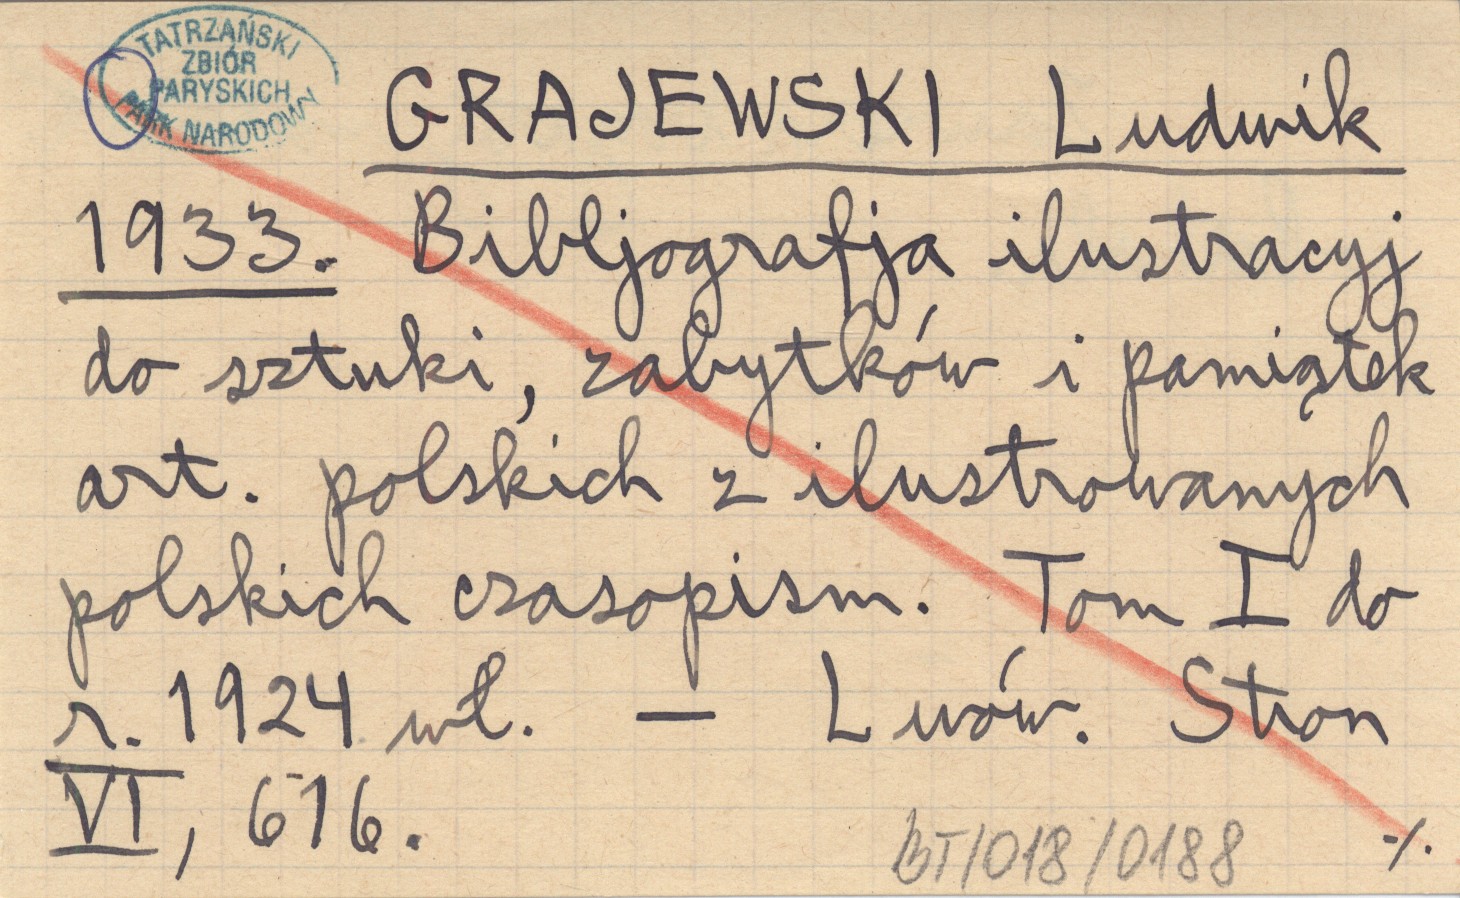 TATRZAŃSKI
ZBIÓR
PARYSKICH
PARK NARODOWY
GRAJEWSKI Ludwik
1933. Bibljografja ilustracyj
do sztuki, zabytków i pamiątek
art. polskich z ilustrowanych
polskich czasopism. Tom I do
r. 1924 wł. — Lwów. Stron
VI, 616.
BT/018/0188
-/.